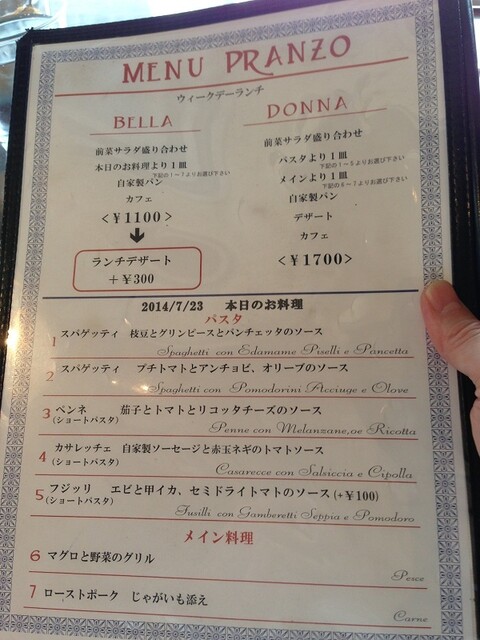 MENU PRANZO
ウィークデーランチ
BELLA
前菜サラダ盛り合わせ
本日のお料理より1皿
下記の1~7よりお選び下さい
自家製パン
カフェ
<¥1100>
ランチデザート
+¥300
DONNA
前菜サラダ盛り合わせ
パスタより1皿
下記の1~5よりお選び下さい
メインより1皿
下記の6~7よりお選び下さい
自家製パン
デザート
カフェ
<¥1700>
2014/7/23 本日のお料理
パスタ
1 スパゲッティ 枝豆とグリンピースとパンチェッタのソース
Spaghetti con Edamame Piselli e Pancetta
2 スパゲッティ プチトマトとアンチョビ、オリーブのソース
Spaghetti con Pomodorini Acciuge e Olove
3 ペンネ 茄子とトマトとリコッタチーズのソース
(ショートパスタ)
Penne con Melanzane,oe Ricotta
4 カサレッチェ 自家製ソーセージと赤玉ネギのトマトソース
(ショートパスタ)
Casarecce con Salsiccia e Cipolla
5 フジッリ エビと甲イカ、セミドライトマトのソース(+¥100)
(ショートパスタ)
Fusilli con Gamberetti Seppia e Pomodoro
メイン料理
6 マグロと野菜のグリル
Pesce
7 ローストポーク じゃがいも添え
Carne